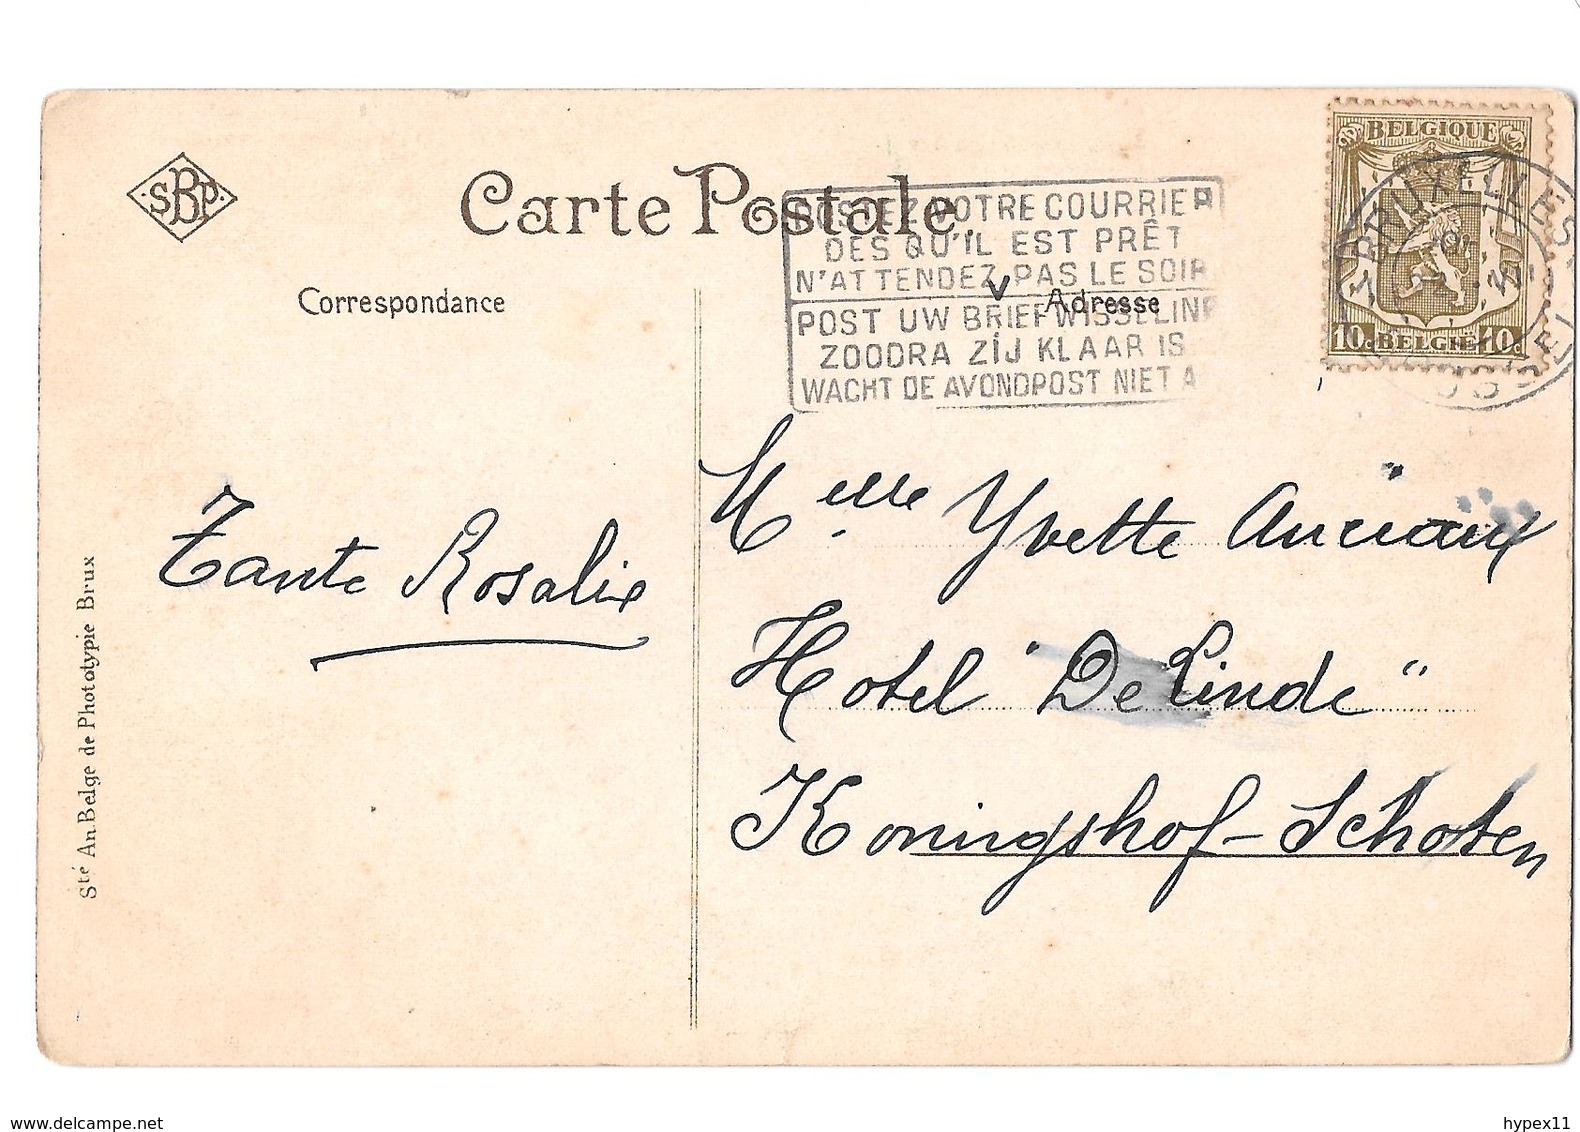 SBP
Carte Postale.
POSTEZ VOTRE COURRIER
DES QU'IL EST PRÊT
N'ATTENDEZ PAS LE SOIR
POST UW BRIEFWISSELING
ZOODRA ZIJ KLAAR IS
WACHT DE AVONDPOST NIET A
BELGIQUE
10c BELGIË 10c
BRUXELLES
Correspondance
Adresse
Tante Rosalie
Melle Yvette Anciaux
Hotel "De Linde"
Koningshof - Schoten
Sté An. Belge de Phototypie Brux
www.delcampe.net
hypex11